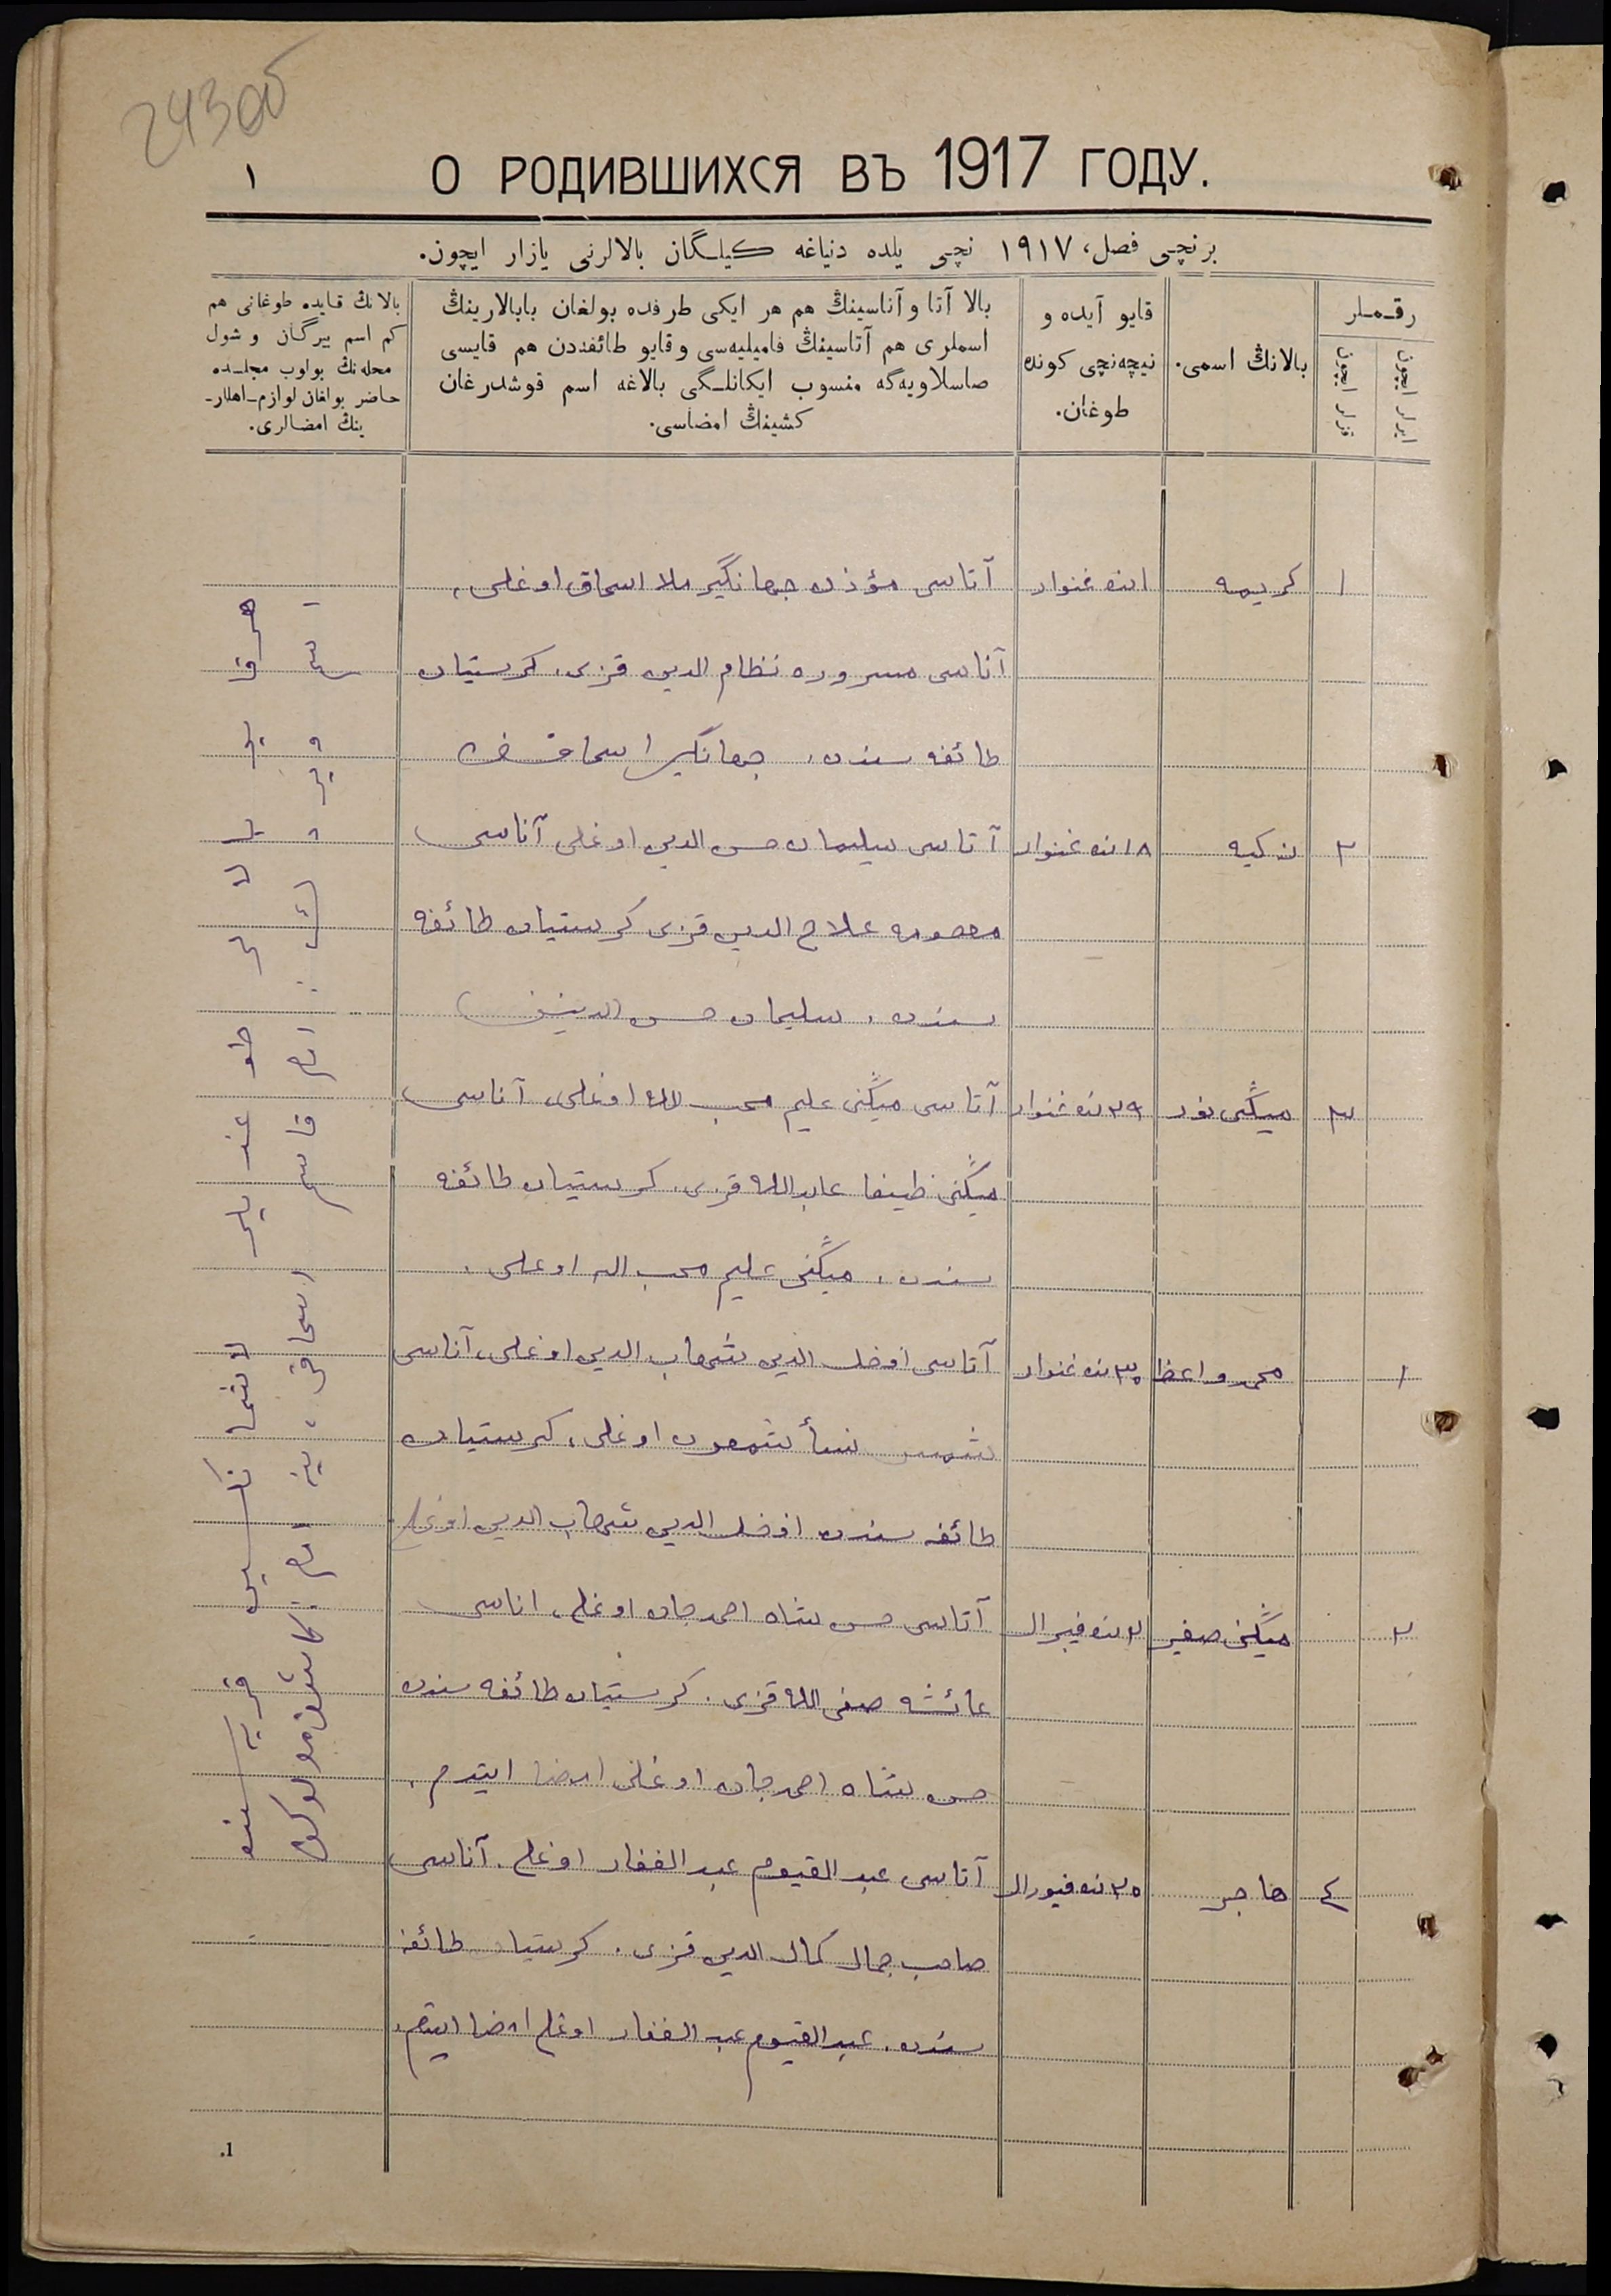 243об
О РОДИВШИХСЯ ВЪ 1917 ГОДУ.
١
برنچی فصل، ١٩١٧ نچی يلده دنياغه كيلـگان بالالرنی يازار ايچون.
رقـمـلر
ايرلر ايچون
قزلر ايچون
بالانڭ اسمی.
قايو آيده و
نيچه‌نچی كونده
طوغان.
بالا آتا و آناسينڭ هم هر ايكی طرفده بولغان بابالارينڭ
اسملری هم آتاسينڭ فاميليه‌سی وقايو طائفه‌دن هم قايسی
صاسلاويه‌گه منسوب ايكانلـگی بالاغه اسم قوشدرغان
كشينڭ امضاسی.
بالانڭ قايده طوغانی هم
كم اسم بيرگان و شول
محله‌نڭ بولوب مجلـده
حاضر بولغان لوازم-اهللر-
ينڭ امضالری.
١ كريمه ١نده غنوار آتاسی مؤذن جهانگير ملا اسحاق اوغلی،
آناسی مسروره نظام الدين قزی، كرستيان
طائفه سندن، جهانگير اسحاقف
٢ زكيه ١٨نده غنوار آتاسی سليمان حسن الدين اوغلی آناسی
معصومه علاج الدين قزی كرستيان طائفه
سندن، سليمان حسن الدينف
٣ ميڭنی نور ٢٩نده غنوار آتاسی ميڭنی عليم محب الله اوغلی، آناسی
ميڭنی ظيفا عابدالله قزی، كرستيان طائفه
سندن، ميڭنی عليم محب الله اوغلی،
١ محمد واعظ ٣٠نده غنوار آتاسی افضل الدين شهاب الدين اوغلی، آناسی
شمس نسأ شمعون اوغلی، كرستيان
طائفه سندن افضل الدين شهاب الدين اوغلی
٢ ميڭنی صفير ٢نده فيرال آتاسی حسن شاه احمدجان اوغلی، اناسی
عائشه صفی الله قزی، كرستيان طائفه سندن
حسن شاه احمدجان اوغلی امضا ايتدم،
٤ هاجر ٢٥نده فيورال آتاسی عبد القيوم عبد الغفار اوغلی، آناسی
صاحب جمال كمال الدين قزی، كرستيان طائفه
سندن، عبد القيوم عبد الغفار اوغلی امضا ايتدم،
1.